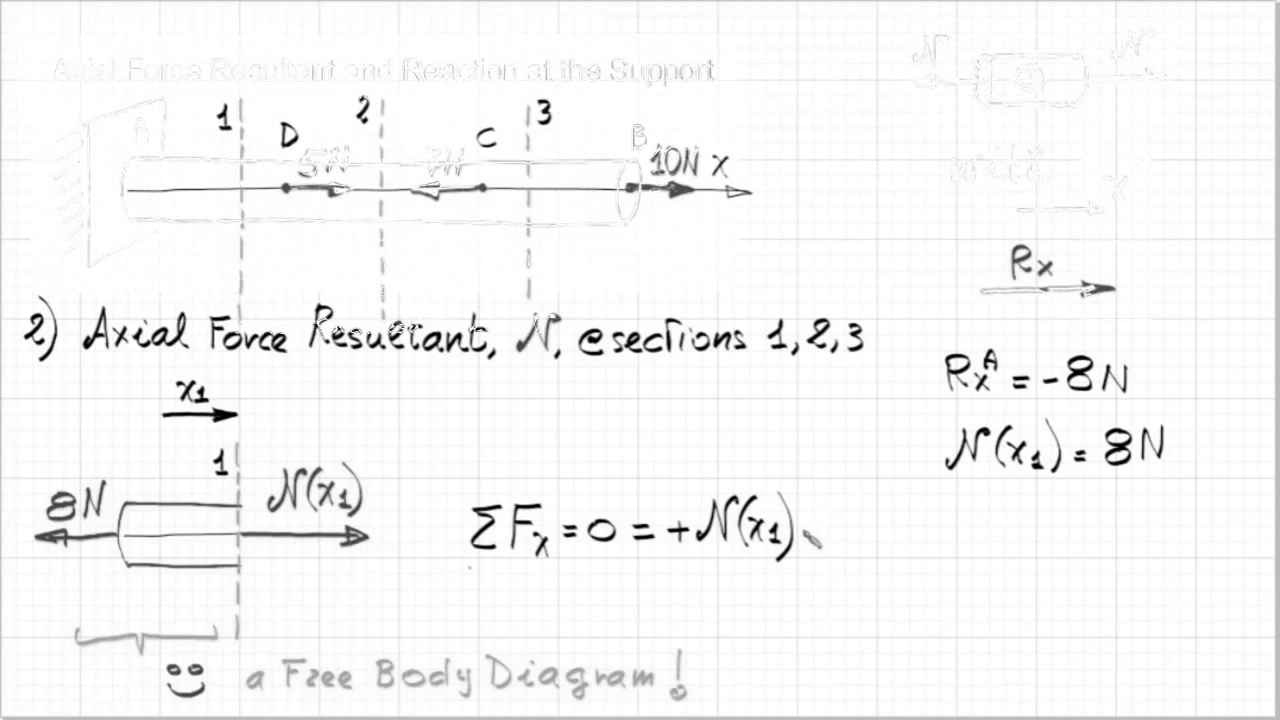 Axial Force Resultant and Reaction at the Support
1 2 3
A D C B
5N 7N 10N x
N N
write
x
Rx
2) Axial Force Resultant, N, @sections 1,2,3
x₁
RₓA = -8N
N(x₁) = 8N
1
8N N(x₁)
ΣFₓ = 0 = +N(x₁)
a Free Body Diagram!